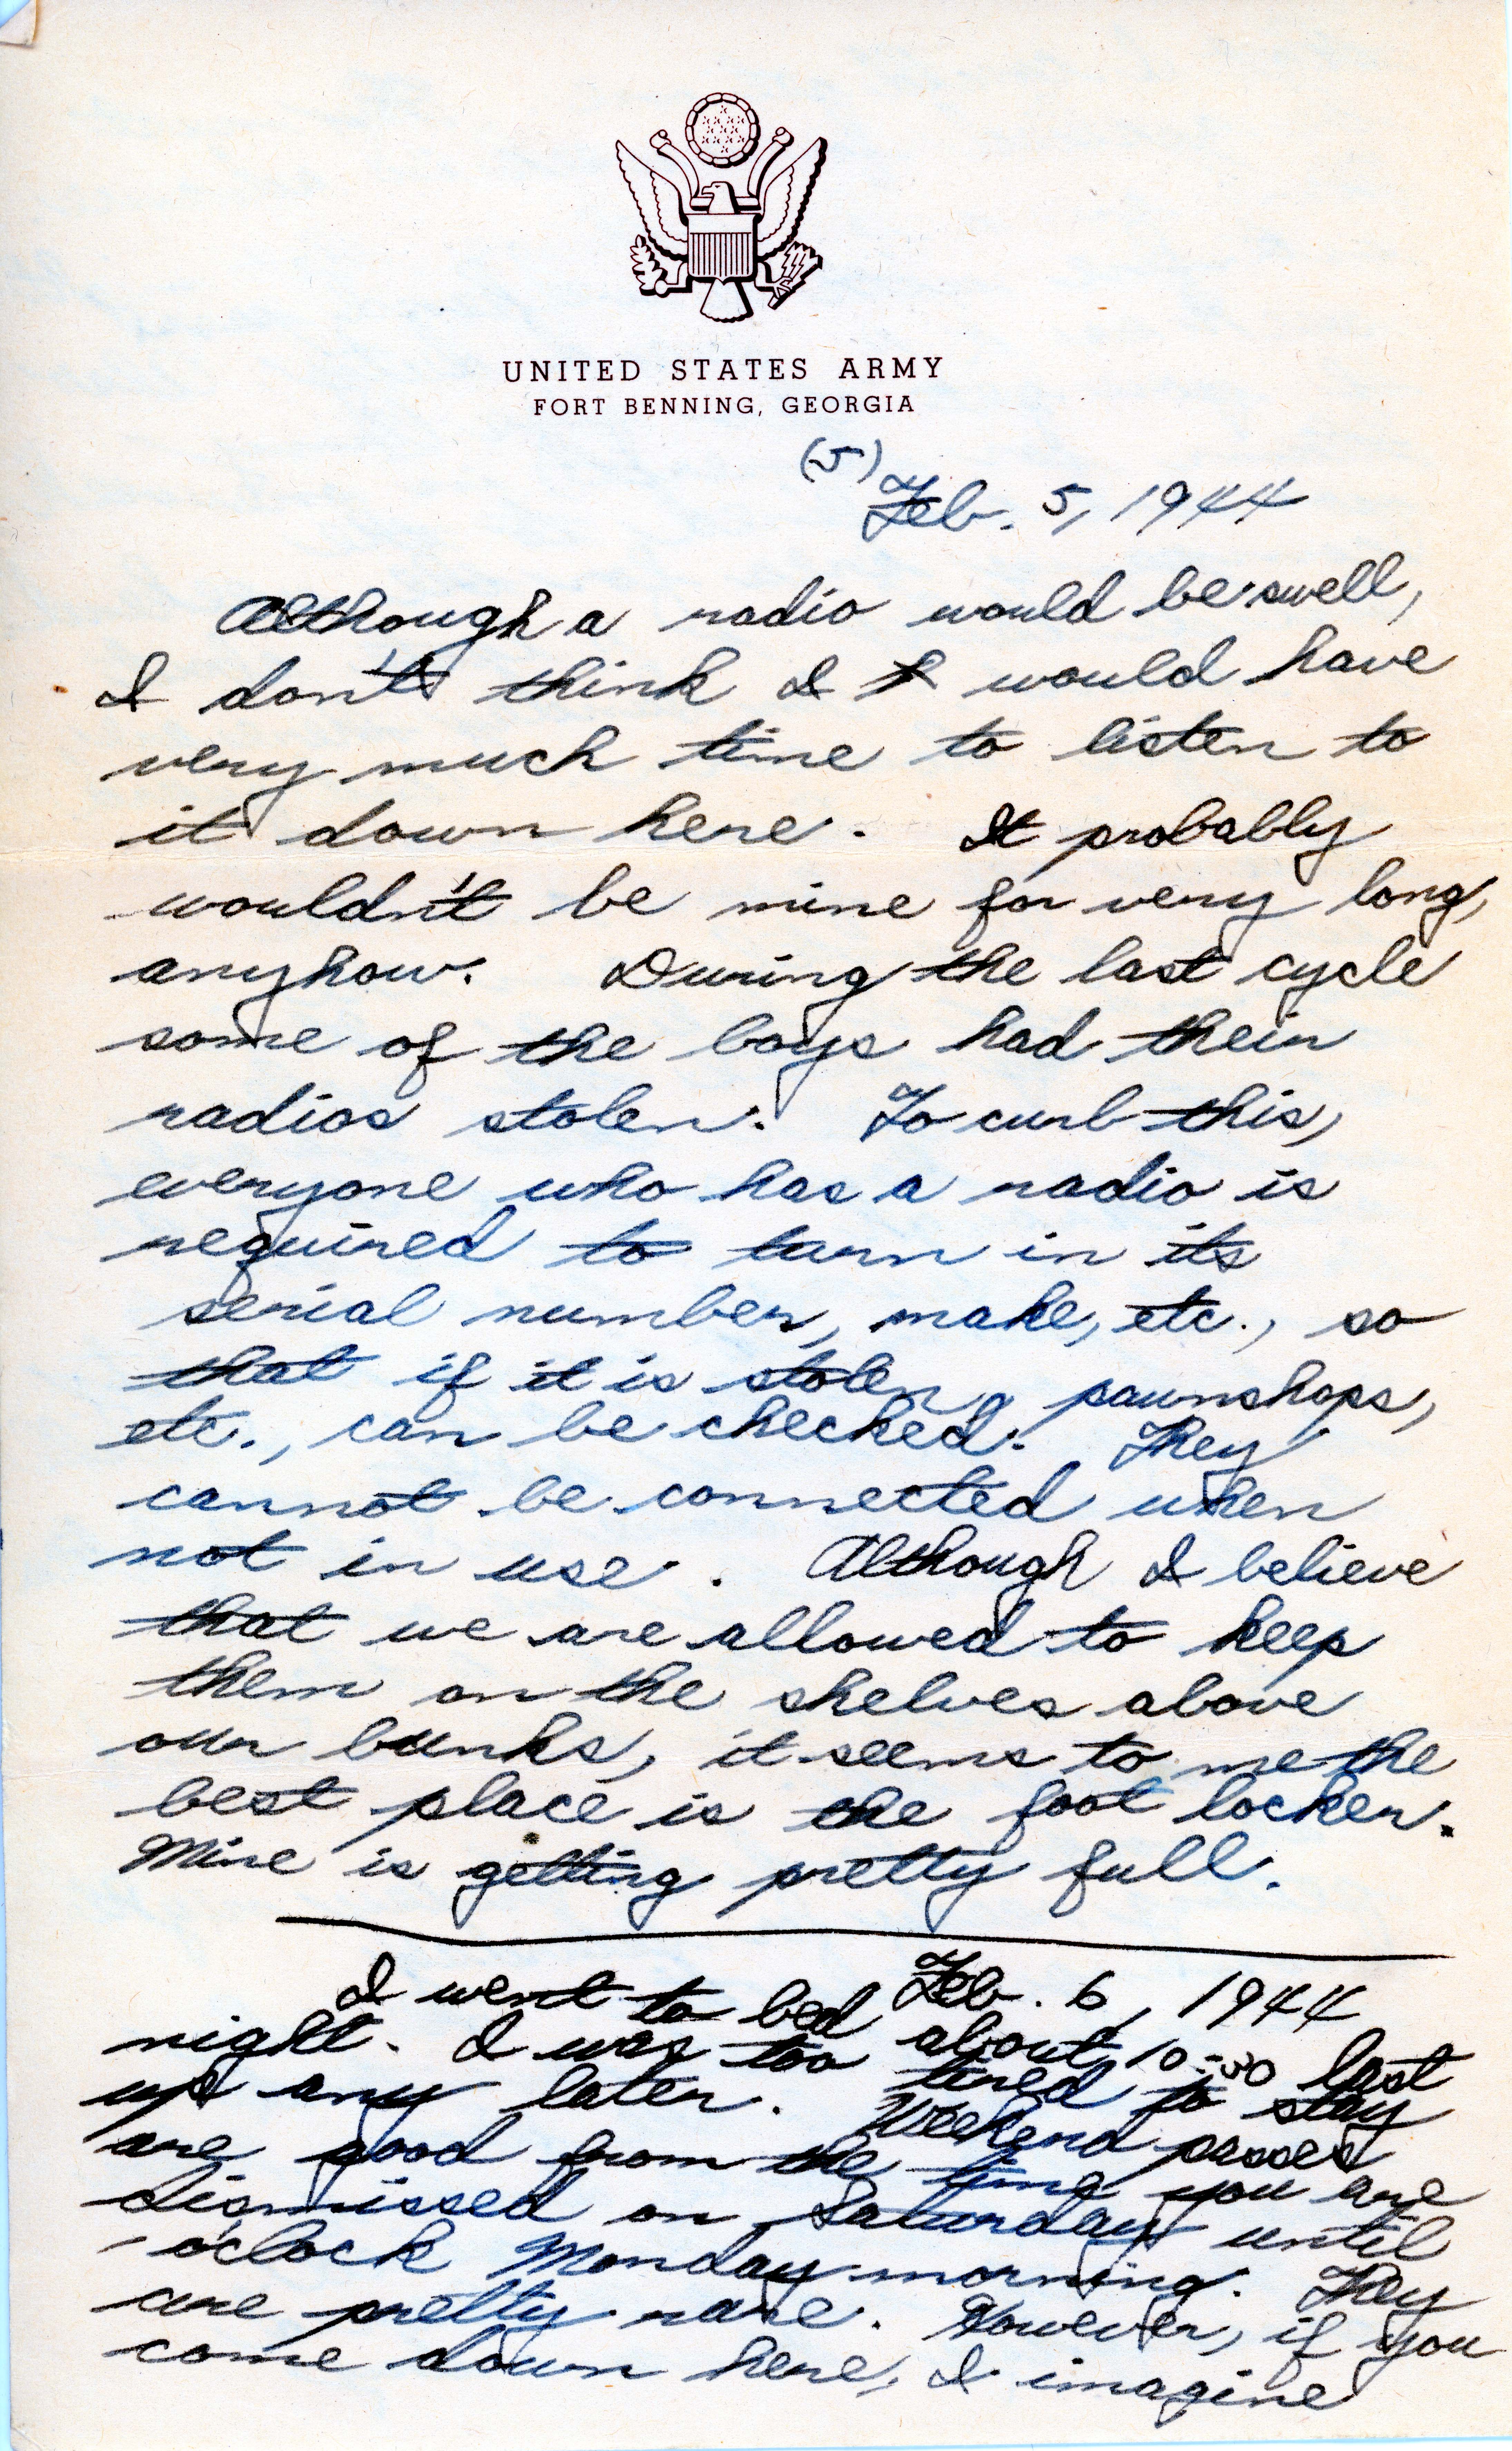 UNITED STATES ARMY
FORT BENNING, GEORGIA
(5)
Feb. 5, 1944
Although a radio would be swell,
I don't think I would have
very much time to listen to
it down here. It probably
wouldn't be mine for very long,
anyhow. During the last cycle
some of the boys had their
radios stolen. To curb this,
everyone who has a radio is
required to turn in its
serial number, make, etc., so
that if it is stolen, pawnshops,
etc., can be checked. They
cannot be connected when
not in use. Although I believe
that we are allowed to keep
them on the shelves above
our bunks, it seems to me the
best place is the foot locker.
Mine is getting pretty full.
Feb. 6, 1944
I went to bed about 10:30 last
night. I was too tired to stay
up any later. Weekend passes
are good from the time you are
dismissed on Saturday until
o'clock Monday morning. They
are pretty rare. However, if you
come down here, I imagine